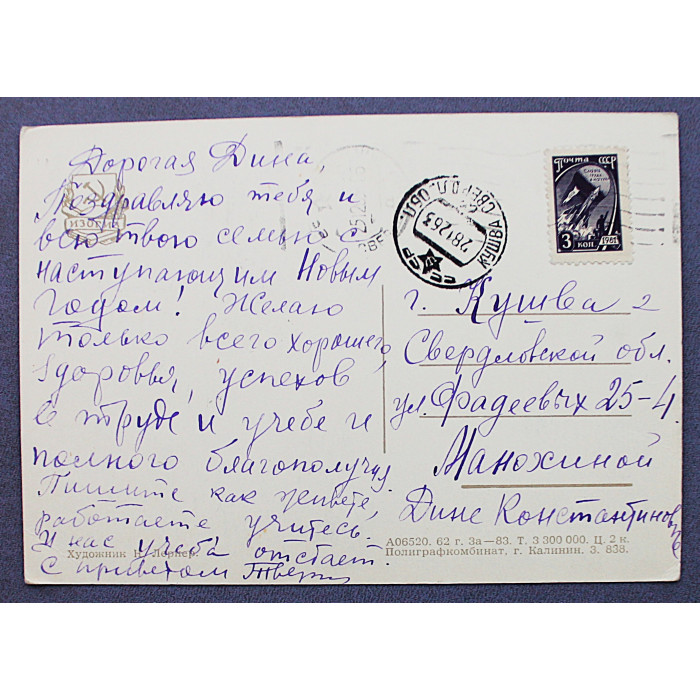 Дорогая Дина,
Поздравляю тебя и
всю твою семью с
наступающим Новым
годом! Желаю
только всего хорошего
здоровья, успехов
в труде и учебе и
полного благополучия
Пишите как живете,
работаете учитесь.
У нас учеба отстает.
С приветом
ИЗОГИЗ
Художник
ПОЧТА СССР
3 КОП. 1961
КУШВА СВЕРДЛ. ОБЛ.
281263
СССР
г. Кушва 2
Свердловской обл.
ул. Фадеевых 25-4
Манохиной
Дине Константиновне
А06520. 62 г. За—83. Т. 3 300 000. Ц. 2 к.
Полиграфкомбинат, г. Калинин. З. 838.